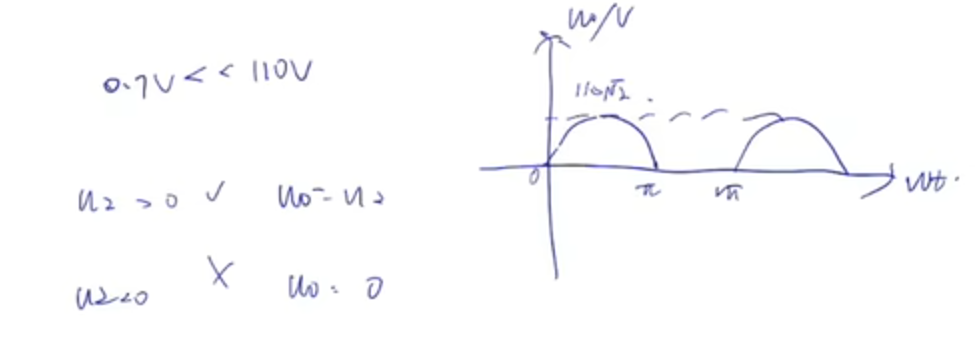 0.7V << 110V
u₂ > 0 ✓ u₀ = u₂
u₂<0 × u₀ = 0
u₀/V
110√2
0 π 2π wt